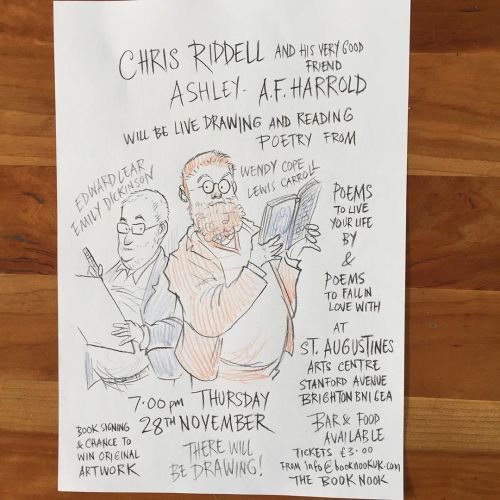 CHRIS RIDDELL AND HIS VERY GOOD
FRIEND
ASHLEY - A.F. HARROLD
WILL BE LIVE DRAWING AND READING
POETRY FROM
EDWARD LEAR
EMILY DICKINSON
WENDY COPE
LEWIS CARROLL
POEMS
TO LIVE
YOUR LIFE
BY
&
POEMS
TO FALL IN
LOVE WITH
AT
ST. AUGUSTINES
ARTS CENTRE
STANFORD AVENUE
BRIGHTON BN1 6EA
7:00 pm THURSDAY
28TH NOVEMBER
BOOK SIGNING
& CHANCE TO
WIN ORIGINAL
ARTWORK
THERE WILL
BE DRAWING!
BAR & FOOD
AVAILABLE
TICKETS £3.00
FROM info@booknookuk.com
THE BOOK NOOK